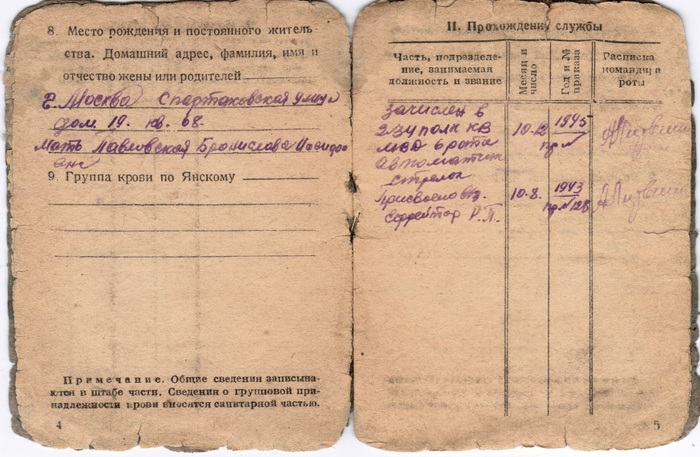 8. Место рождения и постоянного житель-
ства. Домашний адрес, фамилия, имя и
отчество жены или родителей
г. Москва Спартаковская улица
дом. 19. кв. 68.
Мать Павловская Бронислава
9. Группа крови по Янскому
Примечание. Общие сведения записыва-
ются в штабе части. Сведения о групповой при-
надлежности крови вносятся санитарной частью.
4
II. Прохождение службы
Часть, подразделе-
ние, занимаемая
должность и звание
Месяц и
число
Год и №
приказа
Расписка
командира
роты
зачислен в
полк КВ 10.12 1945
МВО 6 рота пр №
автоматчик
стрелок
Присвоено зв. 10.8. 1943
Ефрейтор Р.П. пр. № 128
5